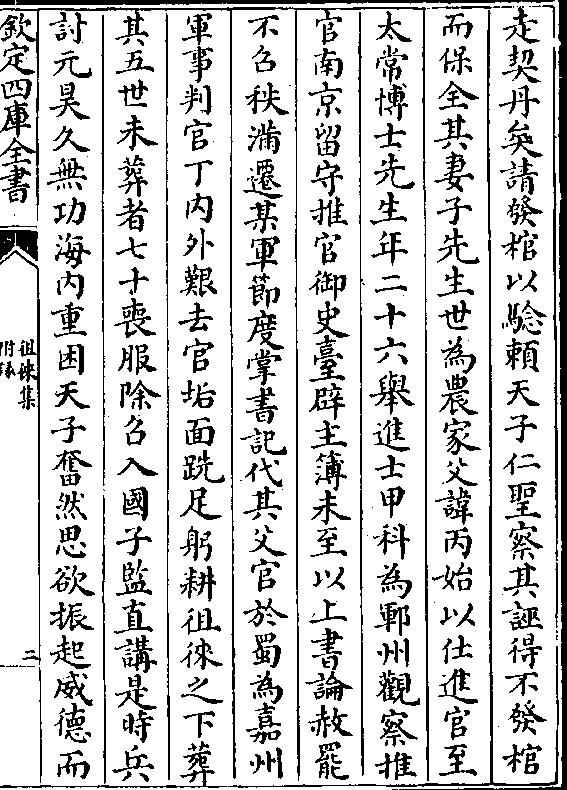 走契丹矣請發棺以驗賴天子仁聖察其誣得不發棺
而保全其妻子先生世為農家父諱丙始以仕進官至
太常博士先生年二十六舉進士甲科為鄆州觀察推
官南京留守推官御史臺辟主簿未至以上書論赦罷
不召秩滿遷某軍節度掌書記代其父官於蜀為嘉州
軍事判官丁内外艱去官垢面跣足躬耕徂徠之下葬
其五世未葬者七十喪服除召入國子監直講是時兵
討元昊久無功海内重困天子奮然思欲振起威德而
欽定四庫全書
徂徠集
附錄
二